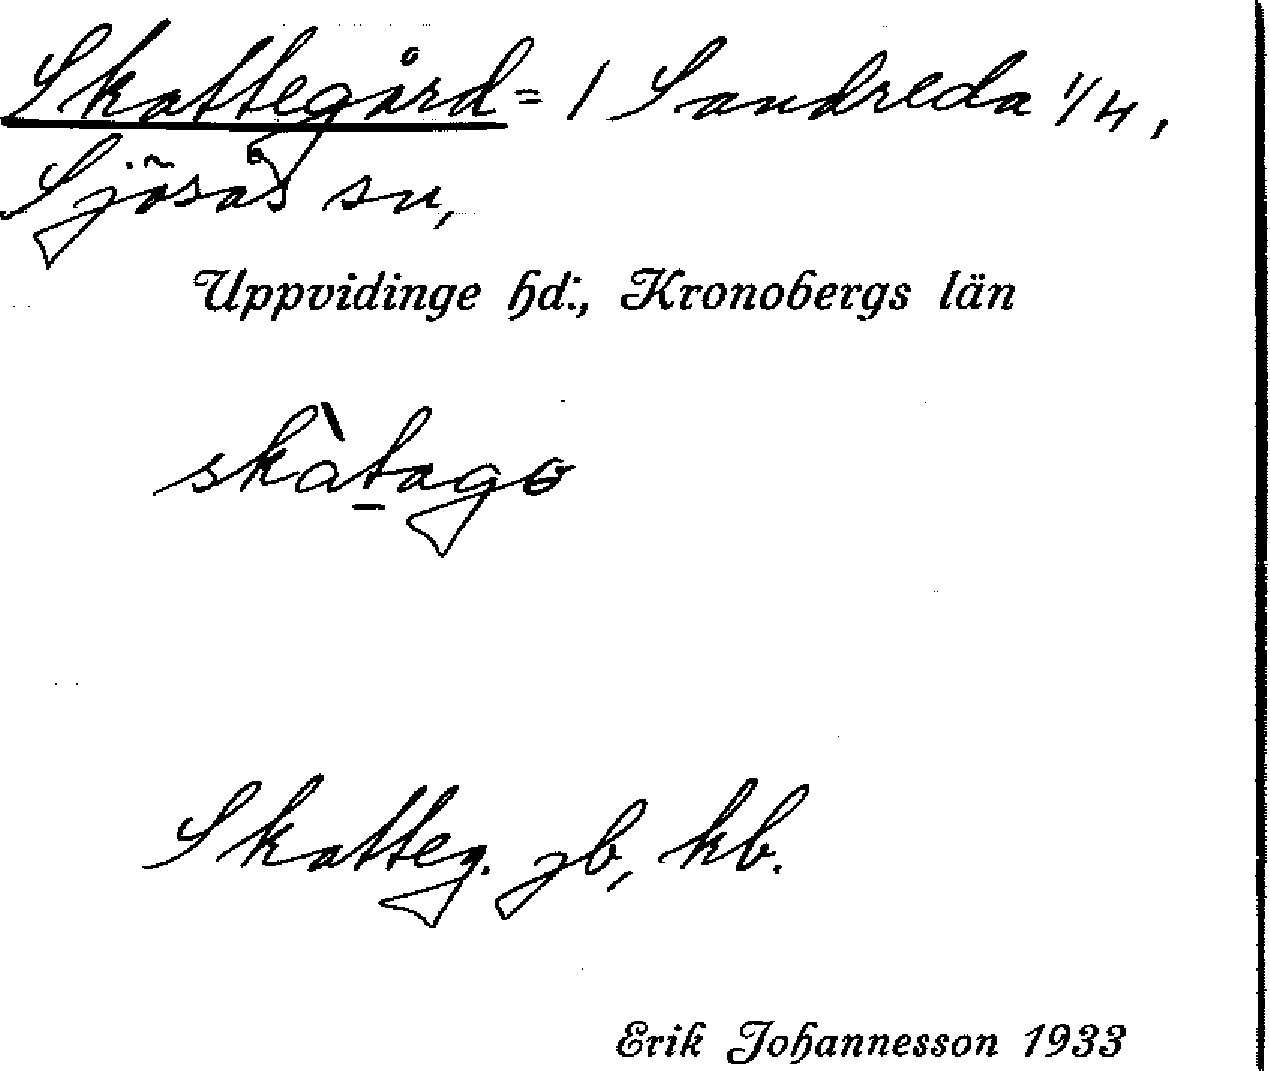 Skattegård = 1 Sandreda 1/4,
Sjösås sn,
Uppvidinge hd:, Kronobergs län
skàtago
Skatteg. jb, kb.
Erik Johannesson 1933